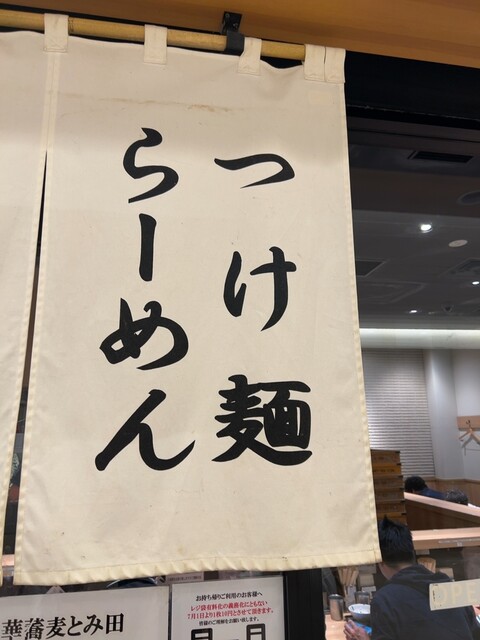 つけ麺
らーめん
華蕎麦とみ田
お持ち帰りご利用のお客様へ
レジ袋有料化の義務化にともない
7月1日より1枚10円とさせて頂きます。
皆様のご理解をお願い致します。
OPE